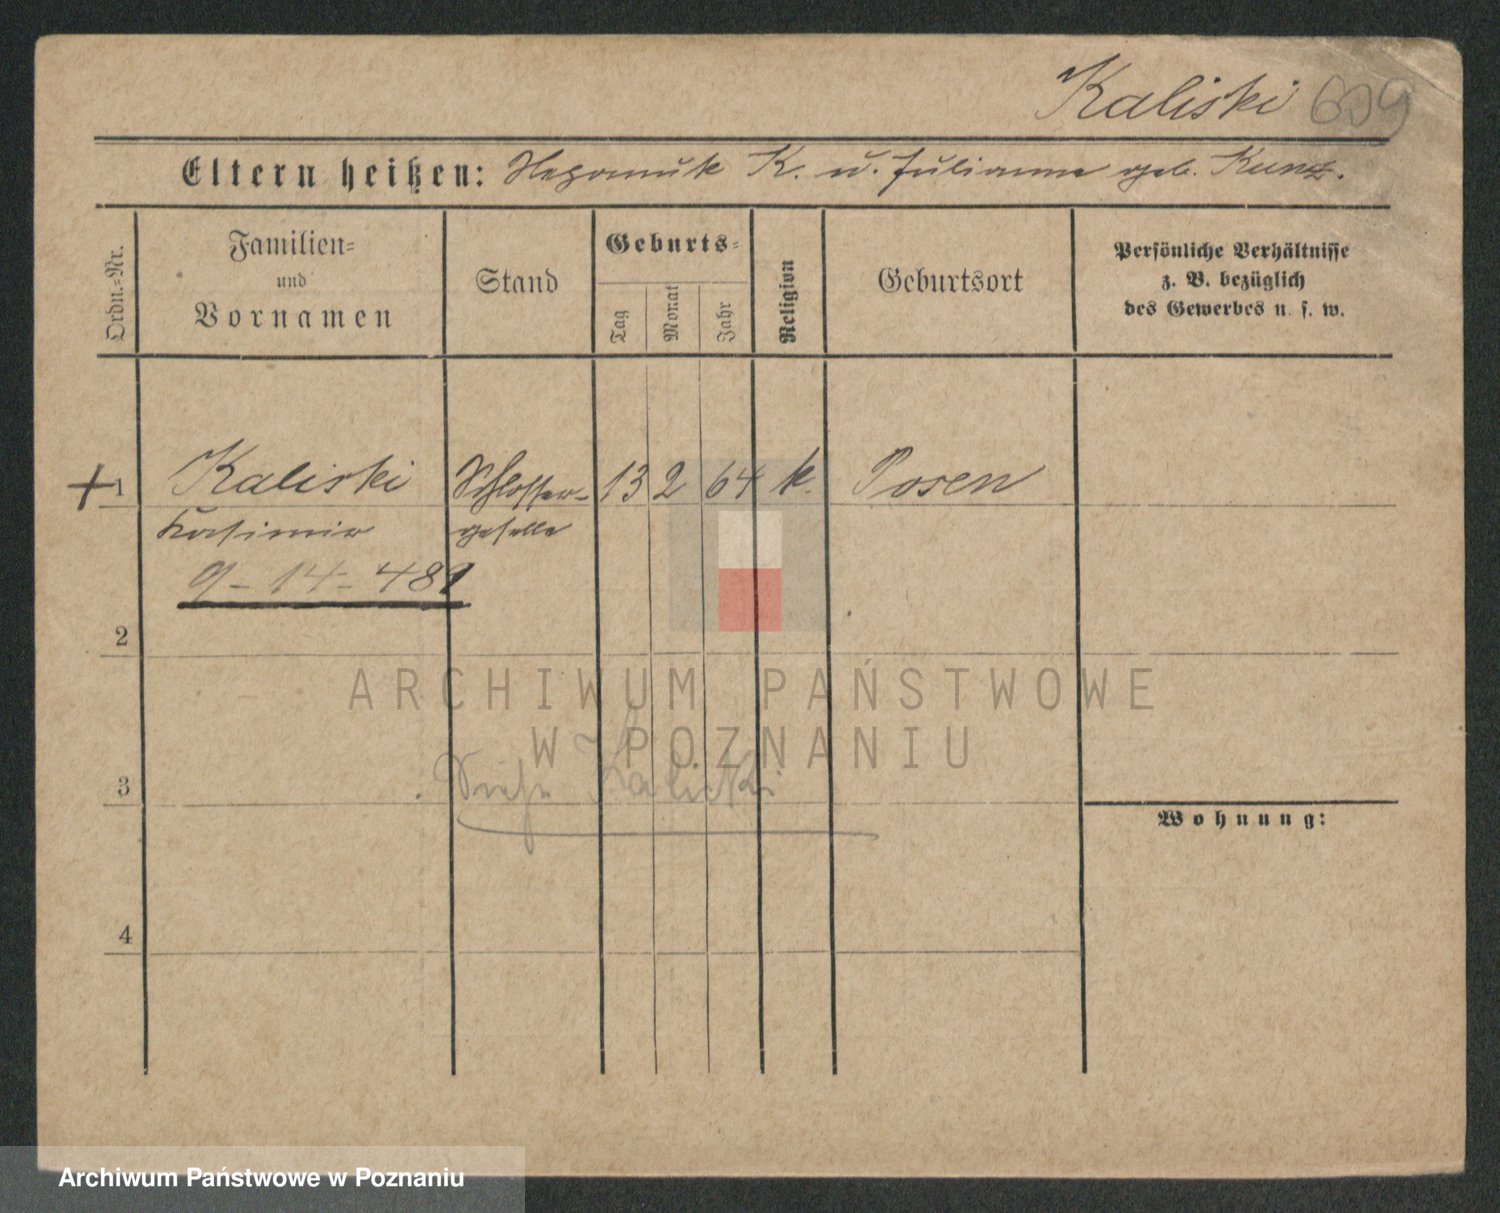 Kaliski 609
Eltern heißen: Nepomuk K. u. Julianna geb. Kunz.
Ordn.-Nr.
Familien-
und
Vornamen
Stand
Geburts-
Tag
Monat
Jahr
Religion
Geburtsort
Persönliche Verhältnisse
z. B. bezüglich
des Gewerbes u. s. w.
+ 1 Kaliski Schlosser- 13 2 64 k. Posen
Kasimir geselle
9-14-489
2
ARCHIWUM PAŃSTWOWE
W POZNANIU
3 Siehe Kalicki
Wohnung:
4
Archiwum Państwowe w Poznaniu